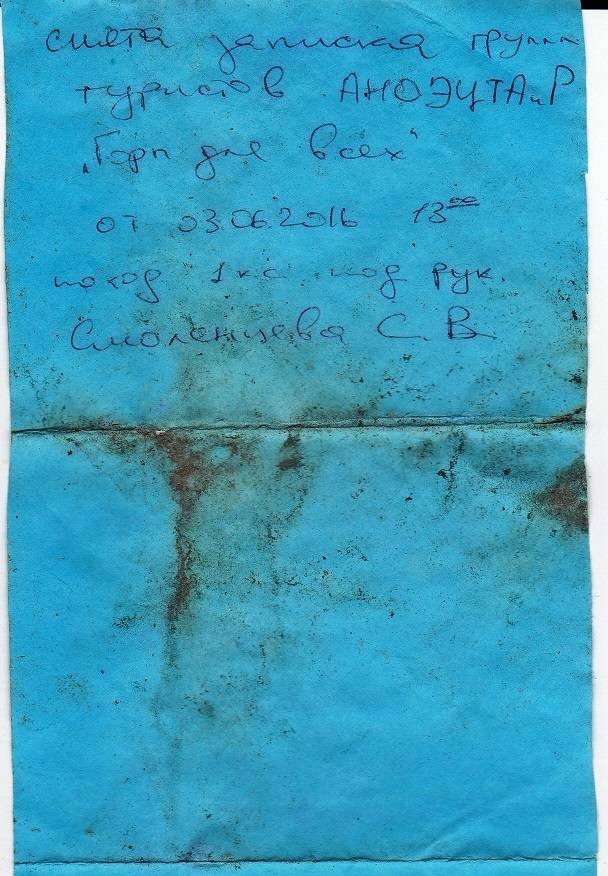 снята записка группы
туристов АНОЭЦТАиР
„Горы для всех“
от 03.06.2016 13⁰⁰
поход 1 кс под рук.
Смоленцева С. В.